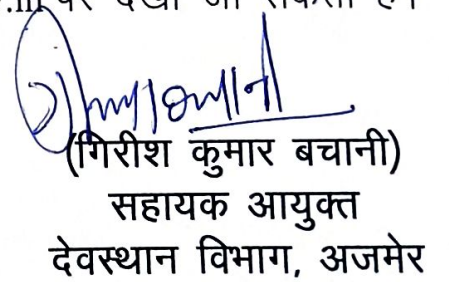 पर देखा जा सकता है।
(गिरीश कुमार बचानी)
सहायक आयुक्त
देवस्थान विभाग, अजमेर